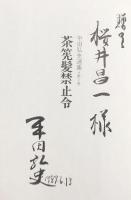 贈呈
桜井昌一様
平田弘史選集・第一巻
茶筅髪禁止令
平田弘史
1987.6.13